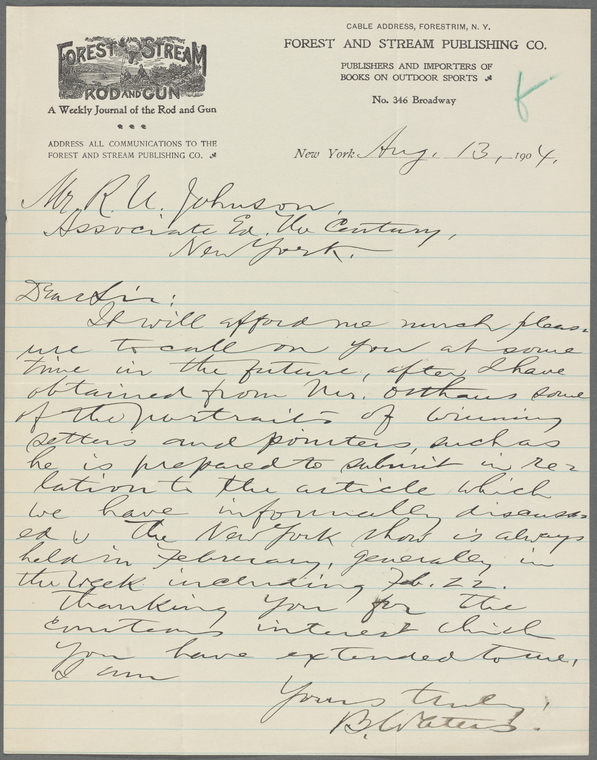 FOREST AND STREAM
ROD AND GUN
A Weekly Journal of the Rod and Gun
ADDRESS ALL COMMUNICATIONS TO THE
FOREST AND STREAM PUBLISHING CO.
CABLE ADDRESS, FORESTRIM, N. Y.
FOREST AND STREAM PUBLISHING CO.
PUBLISHERS AND IMPORTERS OF
BOOKS ON OUTDOOR SPORTS
No. 346 Broadway
New York Aug. 13, 1904.
Mr. R. U. Johnson,
Associate Ed. The Century,
New York.
Dear Sir:
It will afford me much pleas-
ure to call on you at some
time in the future, after I have
obtained from Mr. Osthaus some
of the portraits of winning
setters and pointers, such as
he is prepared to submit in re-
lation to the article which
we have informally discuss-
ed. The New York show is always
held in February, generally in
the week including Feb. 22.
Thanking you for the
courteous interest which
you have extended to me,
I am
Yours truly,
B. Waters.